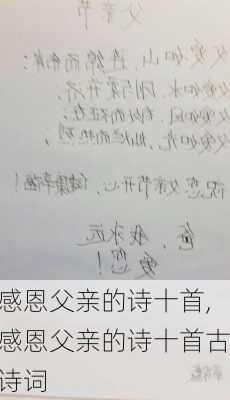 父亲节
父爱如山,连绵而
父爱如水,刚与柔并济;
父爱如风,
父爱如光,灿烂而热烈;
祝您父亲节开心,健康幸福!
爸,我永远
爱您!
感恩父亲的诗十首,
感恩父亲的诗十首古
诗词